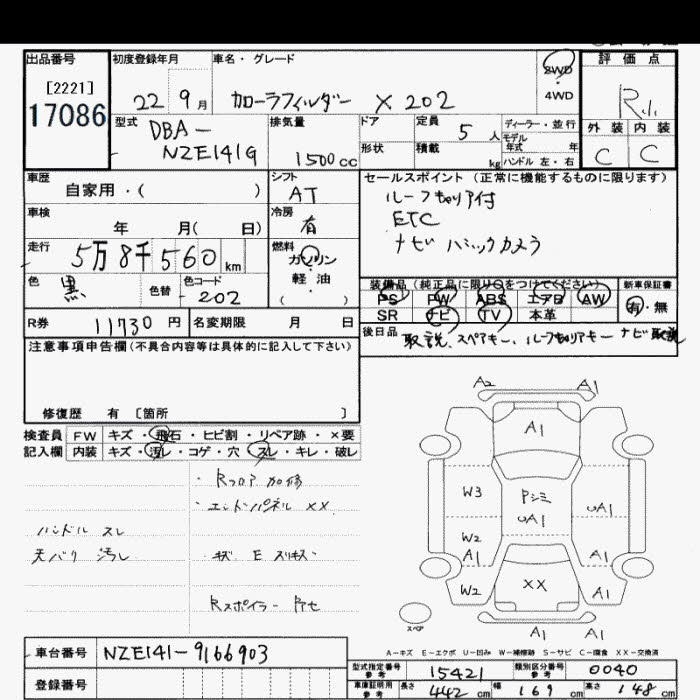 出品番号 初度登録年月 車名・グレード 2WD 評価点
[2221]
17086
22 9月 カローラフィルダー X 202 4WD
型式 DBA- 排気量 ドア 定員 5人 ディーラー・並行
NZE141G 1500cc 形状 積載 kg モデル年式 年
ハンドル 左・右
外装 内装
C C
車歴 シフト セールスポイント (正常に機能するものに限ります)
自家用・( ) AT ルーフキャリア付
車検 冷房 ETC
年 月( 日) 有 ナビ バックカメラ
走行 5万8千560km 燃料 ガソリン
軽油・
( )
色 黒 色替 色コード 202
装備品 (純正品に限り○をつけてください) 新車保証書
PS PW ABS エアB AW 有・無
SR ナビ TV 本革
R券 11730円 名変期限 月 日
後日品 取説、スペアキー、ルーフキャリアキー ナビ取説
注意事項申告欄(不具合内容等は具体的に記入して下さい)
修復歴 有 [箇所 ]
検査員 FW キズ・飛石・ヒビ割・リペア跡・×要
記入欄 内装 キズ・汚レ・コゲ・穴・スレ・キレ・破レ
・Rフロア 加修
・エンドパネル XX
ハンドル スレ
天バリ 汚レ
キズ E スリキズ
Rスポイラー
A2 A1
A1
W3 Pシミ UA1
UA1
W2
A1 A1
W2 XX A1
スペア A1 A1
A-キズ E-エクボ U-凹み W-補修跡 S-サビ C-腐食 XX-交換済
車台番号 NZE141-9166903
登録番号
型式指定番号 参考 15421 類別区分番号 参考 0040
車庫証明用 参考 長さ 442cm 幅 169cm 高さ 148cm